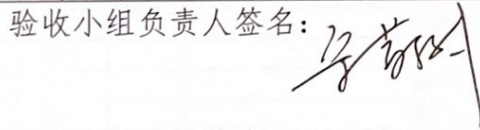 验收小组负责人签名：